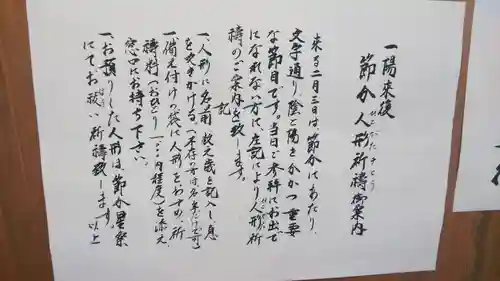 一陽来復
節分人形祈祷御案内
来る二月三日は、節分にあたり、
文字通り、陰と陽をわかつ重要
な節目です。当日ご参拝にお出で
になれない方に、左記により人形祈
祷のご案内を致します。
記
一、人形に名前、数え歳を記入し、息
を吹きかける。
一、備え付けの袋に人形をおさめ、祈
祷料(おひとり
円程度)を添え
窓口にお持ち下さい。
一、お預りした人形は、節分星祭
にてお祓い祈祷致します。以上